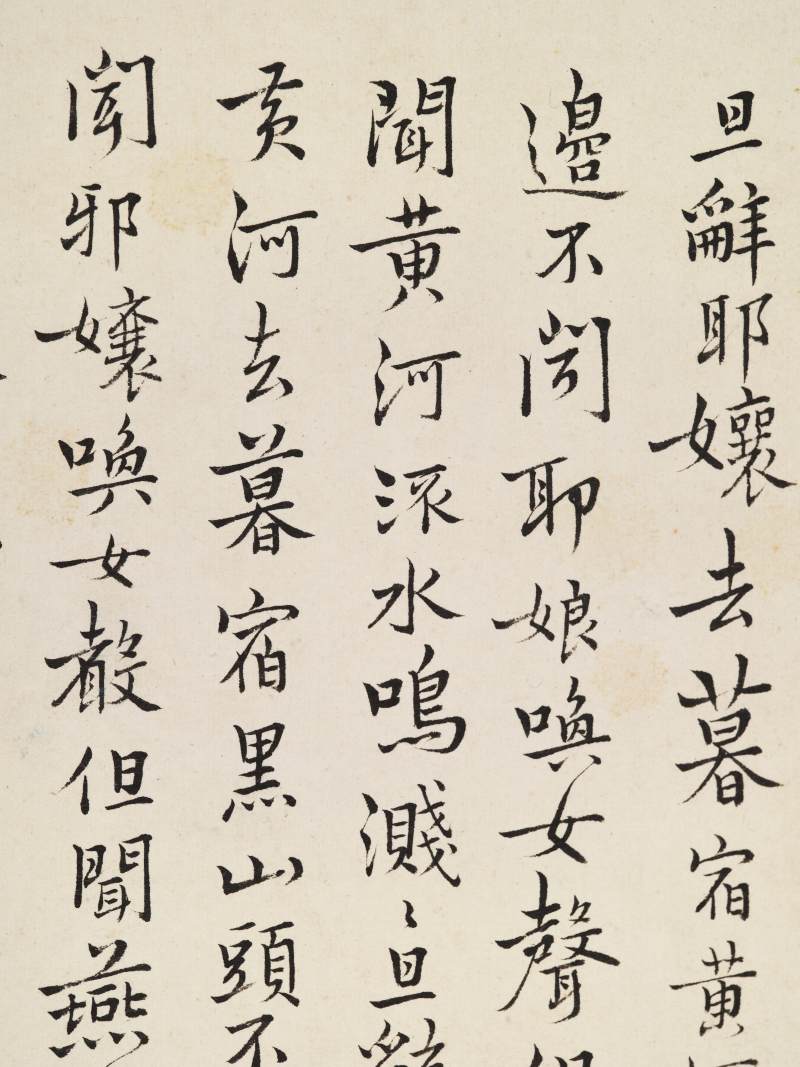 旦辭耶孃去暮宿黄河
邊不聞耶娘喚女聲但
聞黄河流水鳴濺〻旦辭
黄河去暮宿黑山頭不
聞邪孃喚女聲但聞燕